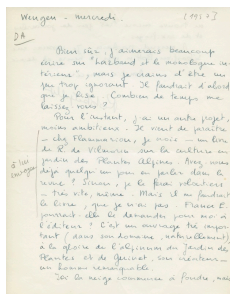 Wengen - mercredi. [1957]
DA
Bien sûr, j'aimerais beaucoup
écrire sur "Larbaud et le monologue in-
térieur", mais je crains d'être un
peu trop ignorant. Il faudrait d'abord
que je lise. Combien de temps me
laissez-vous ?
Pour l'instant, j'ai un autre projet,
moins ambitieux. Il vient de paraître
- chez Flammarion, je crois - un livre
de R. de Vilmorin sur la culture au
jardin des Plantes Alpines. Avez-vous
déjà quelqu'un pour en parler dans la
revue ? Sinon, je le ferai volontiers
- très vite, même. Mais il me faudrait
le livre, que je n'ai pas.
pourrait-elle le demander pour moi à
l'éditeur ? C'est un ouvrage très impor-
tant (dans son domaine, naturellement)
à la gloire de l'alpinum du Jardin des
Plantes et de son créateur -
un homme remarquable.
Ici la neige commence à fondre, mais
à lui
envoyer